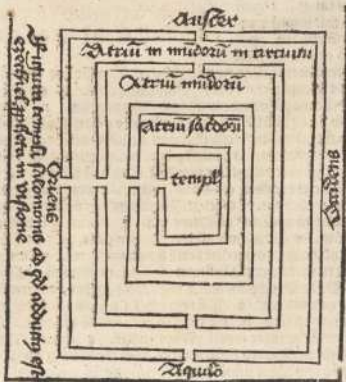 Auster
Atriū in mūdorū in circuitu
Atriū mūdorū
atriū sacdorū
templ
Oriens
Occidens
Aquilo
Figura templi salomonis ad qd adductus est
ezechiel ppheta in visione